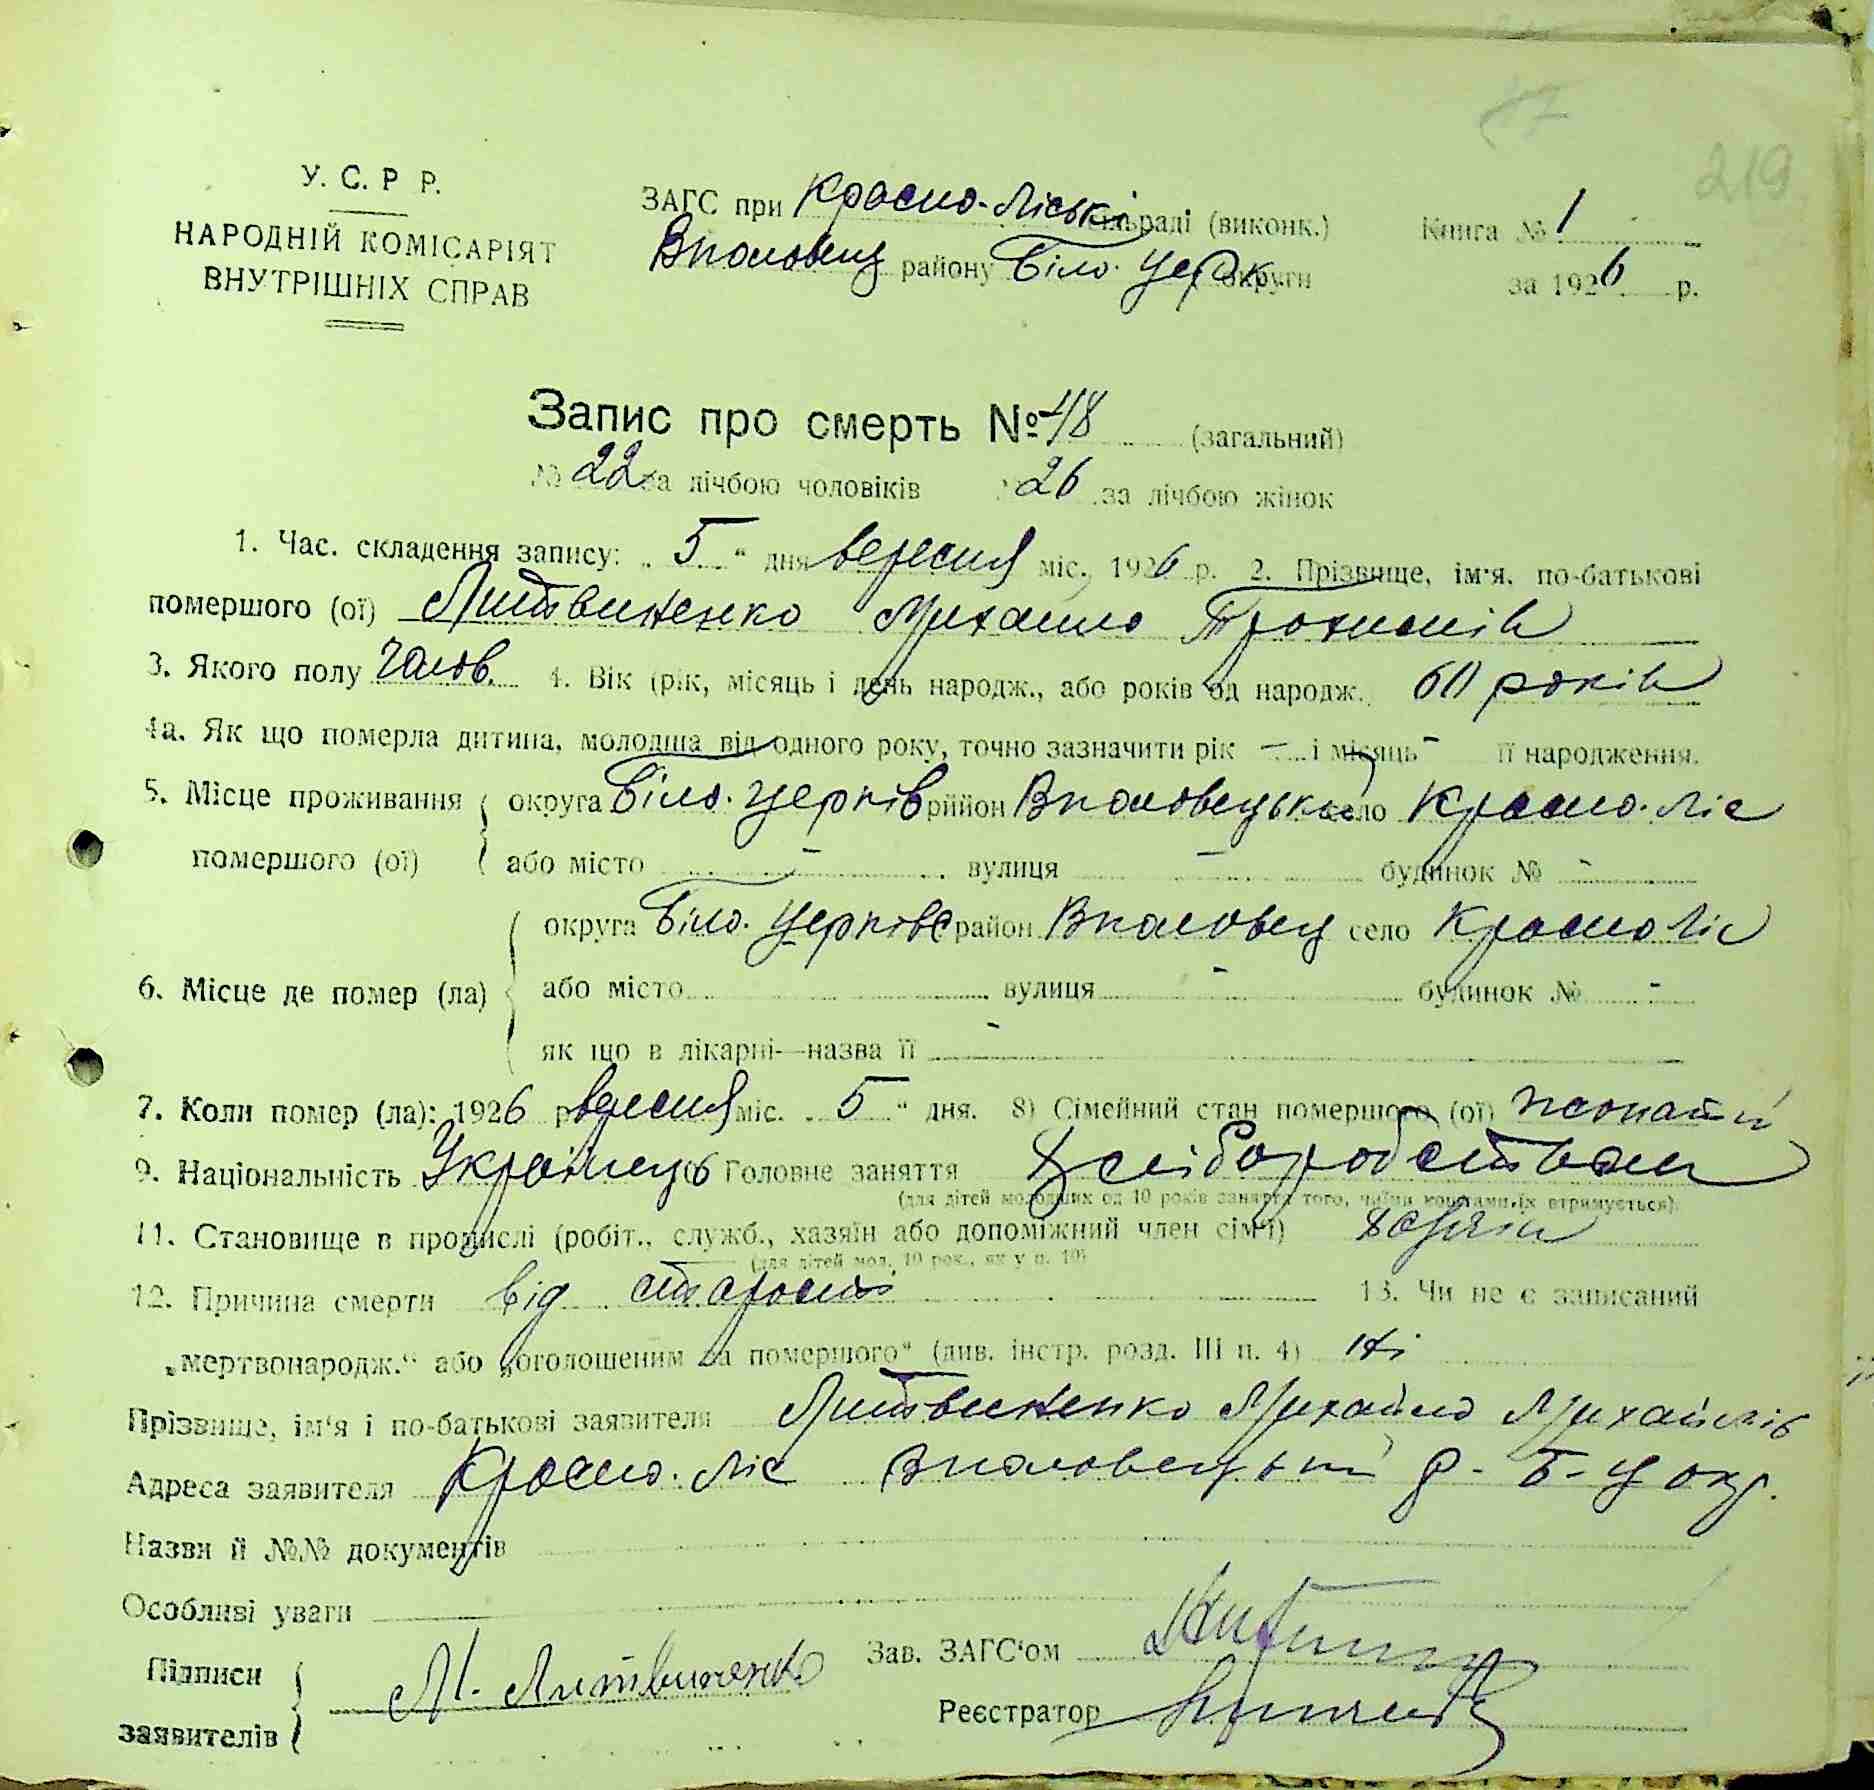 219
У. С. Р Р.
НАРОДНІЙ КОМІСАРІЯТ
ВНУТРІШНІХ СПРАВ
ЗАГС при Красно-Ліські сільраді (виконк.) Книга № 1
району Біло. Церк. округи за 1926 р.
Запис про смерть № 48 (загальний)
№ 22 за лічбою чоловіків 26 за лічбою жінок
1. Час. складення запису: „ 5 “ дня вересня міс. 1926 р. 2. Прізвище, ім'я, по-батькові
помершого (ої) Литвиненко Михайло Трохимів
3. Якого полу чолов. 4. Вік (рік, місяць і день народж., або років од народж. 60 років
4а. Як що померла дитина, молодша від одного року, точно зазначити рік – і місяць – її народження.
5. Місце проживання округа Біло. Церків район село Красно. Ліс
помершого (ої) або місто – вулиця – будинок № -
округа Біло. Церківс район село Красно Ліс
6. Місце де помер (ла) або місто вулиця - будинок № -
як що в лікарні—назва її -
7. Коли помер (ла): 1926 р. вересня міс. „ 5 “ дня. 8) Сімейний стан помершого (ої) жонатий
9. Національність Українець 10 Головне заняття хліборобством
(для дітей молодших од 10 років заняття того, чиїми коштами їх втримується).
11. Становище в промислі (робіт., служб., хазяїн або допоміжний член сім'ї) хазяїн
(для дітей мол. 10 рок., як у п. 10)
12. Причина смерти від старости 13. Чи не є записаний
„мертвонародж.“ або „оголошеним за помершого“ (див. інстр. розд. III п. 4) ні
Прізвище, ім'я і по-батькові заявителя Литвиненко Михайло Михайлів
Адреса заявителя Красно. Ліс р- Б-Ц окр.
Назви й №№ документів
Особливі уваги
Підписи
заявителів М. Литвиненко
Зав. ЗАГС'ом
Реєстратор